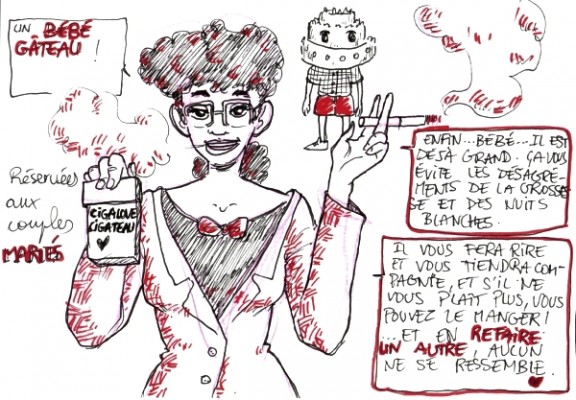 UN BÉBÉ
GÂTEAU !
Réservées
aux
couples
MARIÉS
CIGALOVE
CIGATEAU
ENFIN...BÉBÉ...IL EST
DÉJÀ GRAND. ÇA VOUS
ÉVITE LES DÉSAGRÉ-
MENTS DE LA GROSSE-
SE ET DES NUITS
BLANCHES.
IL VOUS FERA RIRE
ET VOUS TIENDRA COM-
PAGNIE, ET S'IL NE
VOUS PLAIT PLUS, VOUS
POUVEZ LE MANGER !
...ET EN REFAIRE
UN AUTRE, AUCUN
NE SE RESSEMBLE.